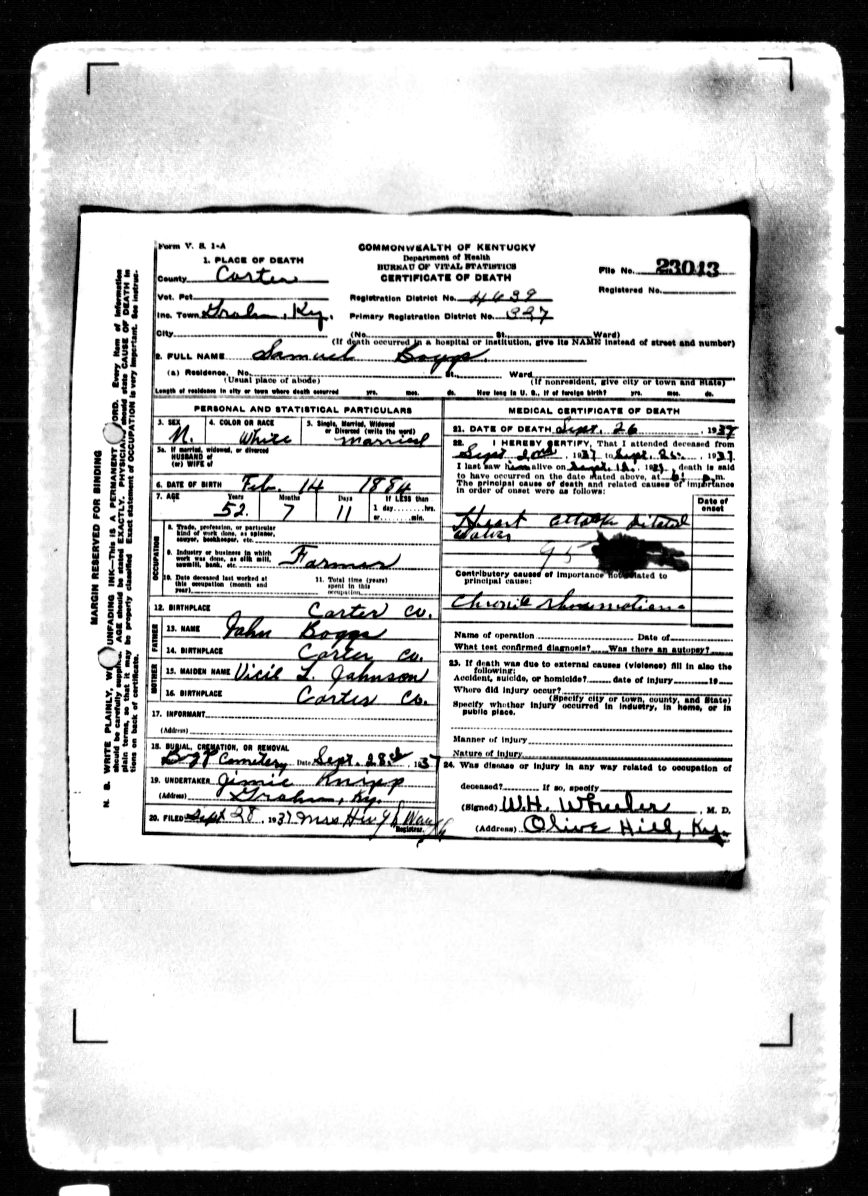 Form V. S. 1-A
COMMONWEALTH OF KENTUCKY
Department of Health
BUREAU OF VITAL STATISTICS
CERTIFICATE OF DEATH
File No. 23043
Registered No.
1. PLACE OF DEATH
County Carter
Vot. Pct
Registration District No. 4639
Inc. Town Grahn, Ky.
Primary Registration District No. 337
City (No. St. Ward)
(If death occurred in a hospital or institution, give its NAME instead of street and number)
2. FULL NAME Samuel Boggs
(a) Residence, No. St. Ward
(Usual place of abode) (If nonresident, give city or town and State)
Length of residence in city or town where death occurred yrs. mos. ds. How long in U. S., if of foreign birth? yrs. mos. ds.
PERSONAL AND STATISTICAL PARTICULARS
3. SEX 4. COLOR OR RACE 5. Single, Married, Widowed
or Divorced (write the word)
M. White married
5a. If married, widowed, or divorced
HUSBAND of
(or) WIFE of
6. DATE OF BIRTH Feb. 14 1884
7. AGE Years Months Days If LESS than
52 7 11 1 day hrs.
or min.
OCCUPATION
8. Trade, profession, or particular
kind of work done, as spinner,
sawyer, bookkeeper, etc.
9. Industry or business in which
work was done, as silk mill,
sawmill, bank, etc. Farmer
10. Date deceased last worked at
this occupation (month and
year)
11. Total time (years)
spent in this
occupation
12. BIRTHPLACE Carter Co.
FATHER
13. NAME John Boggs
14. BIRTHPLACE Carter Co.
MOTHER
15. MAIDEN NAME L. Johnson
16. BIRTHPLACE Carter Co.
17. INFORMANT
(Address)
18. BURIAL, CREMATION, OR REMOVAL
Cemetery Date Sept. 28th, 1937
19. UNDERTAKER Jimie Knipp
(Address) Grahn, Ky.
20. FILED Sept 28, 1937 Mrs Hugh Waugh
Registrar.
MEDICAL CERTIFICATE OF DEATH
21. DATE OF DEATH Sept. 26, 1937
22. I HEREBY CERTIFY, That I attended deceased from
Sept 2nd, 1937 to Sept. 26, 1937
I last saw him alive on Sept. 1937, death is said
to have occurred on the date stated above, at m.
The principal cause of death and related causes of importance
in order of onset were as follows:
Date of
onset
Heart attack
95
Contributory causes of importance not related to
principal cause:
Chronic rheumatism
Name of operation Date of
What test confirmed diagnosis? Was there an autopsy?
23. If death was due to external causes (violence) fill in also the
following:
Accident, suicide, or homicide? date of injury 19
Where did injury occur?
(Specify city or town, county, and State)
Specify whether injury occurred in industry, in home, or in
public place.
Manner of injury
Nature of injury
24. Was disease or injury in any way related to occupation of
deceased? If so, specify
(Signed) W.H. Wheeler, M. D.
(Address) Olive Hill, Ky.
MARGIN RESERVED FOR BINDING